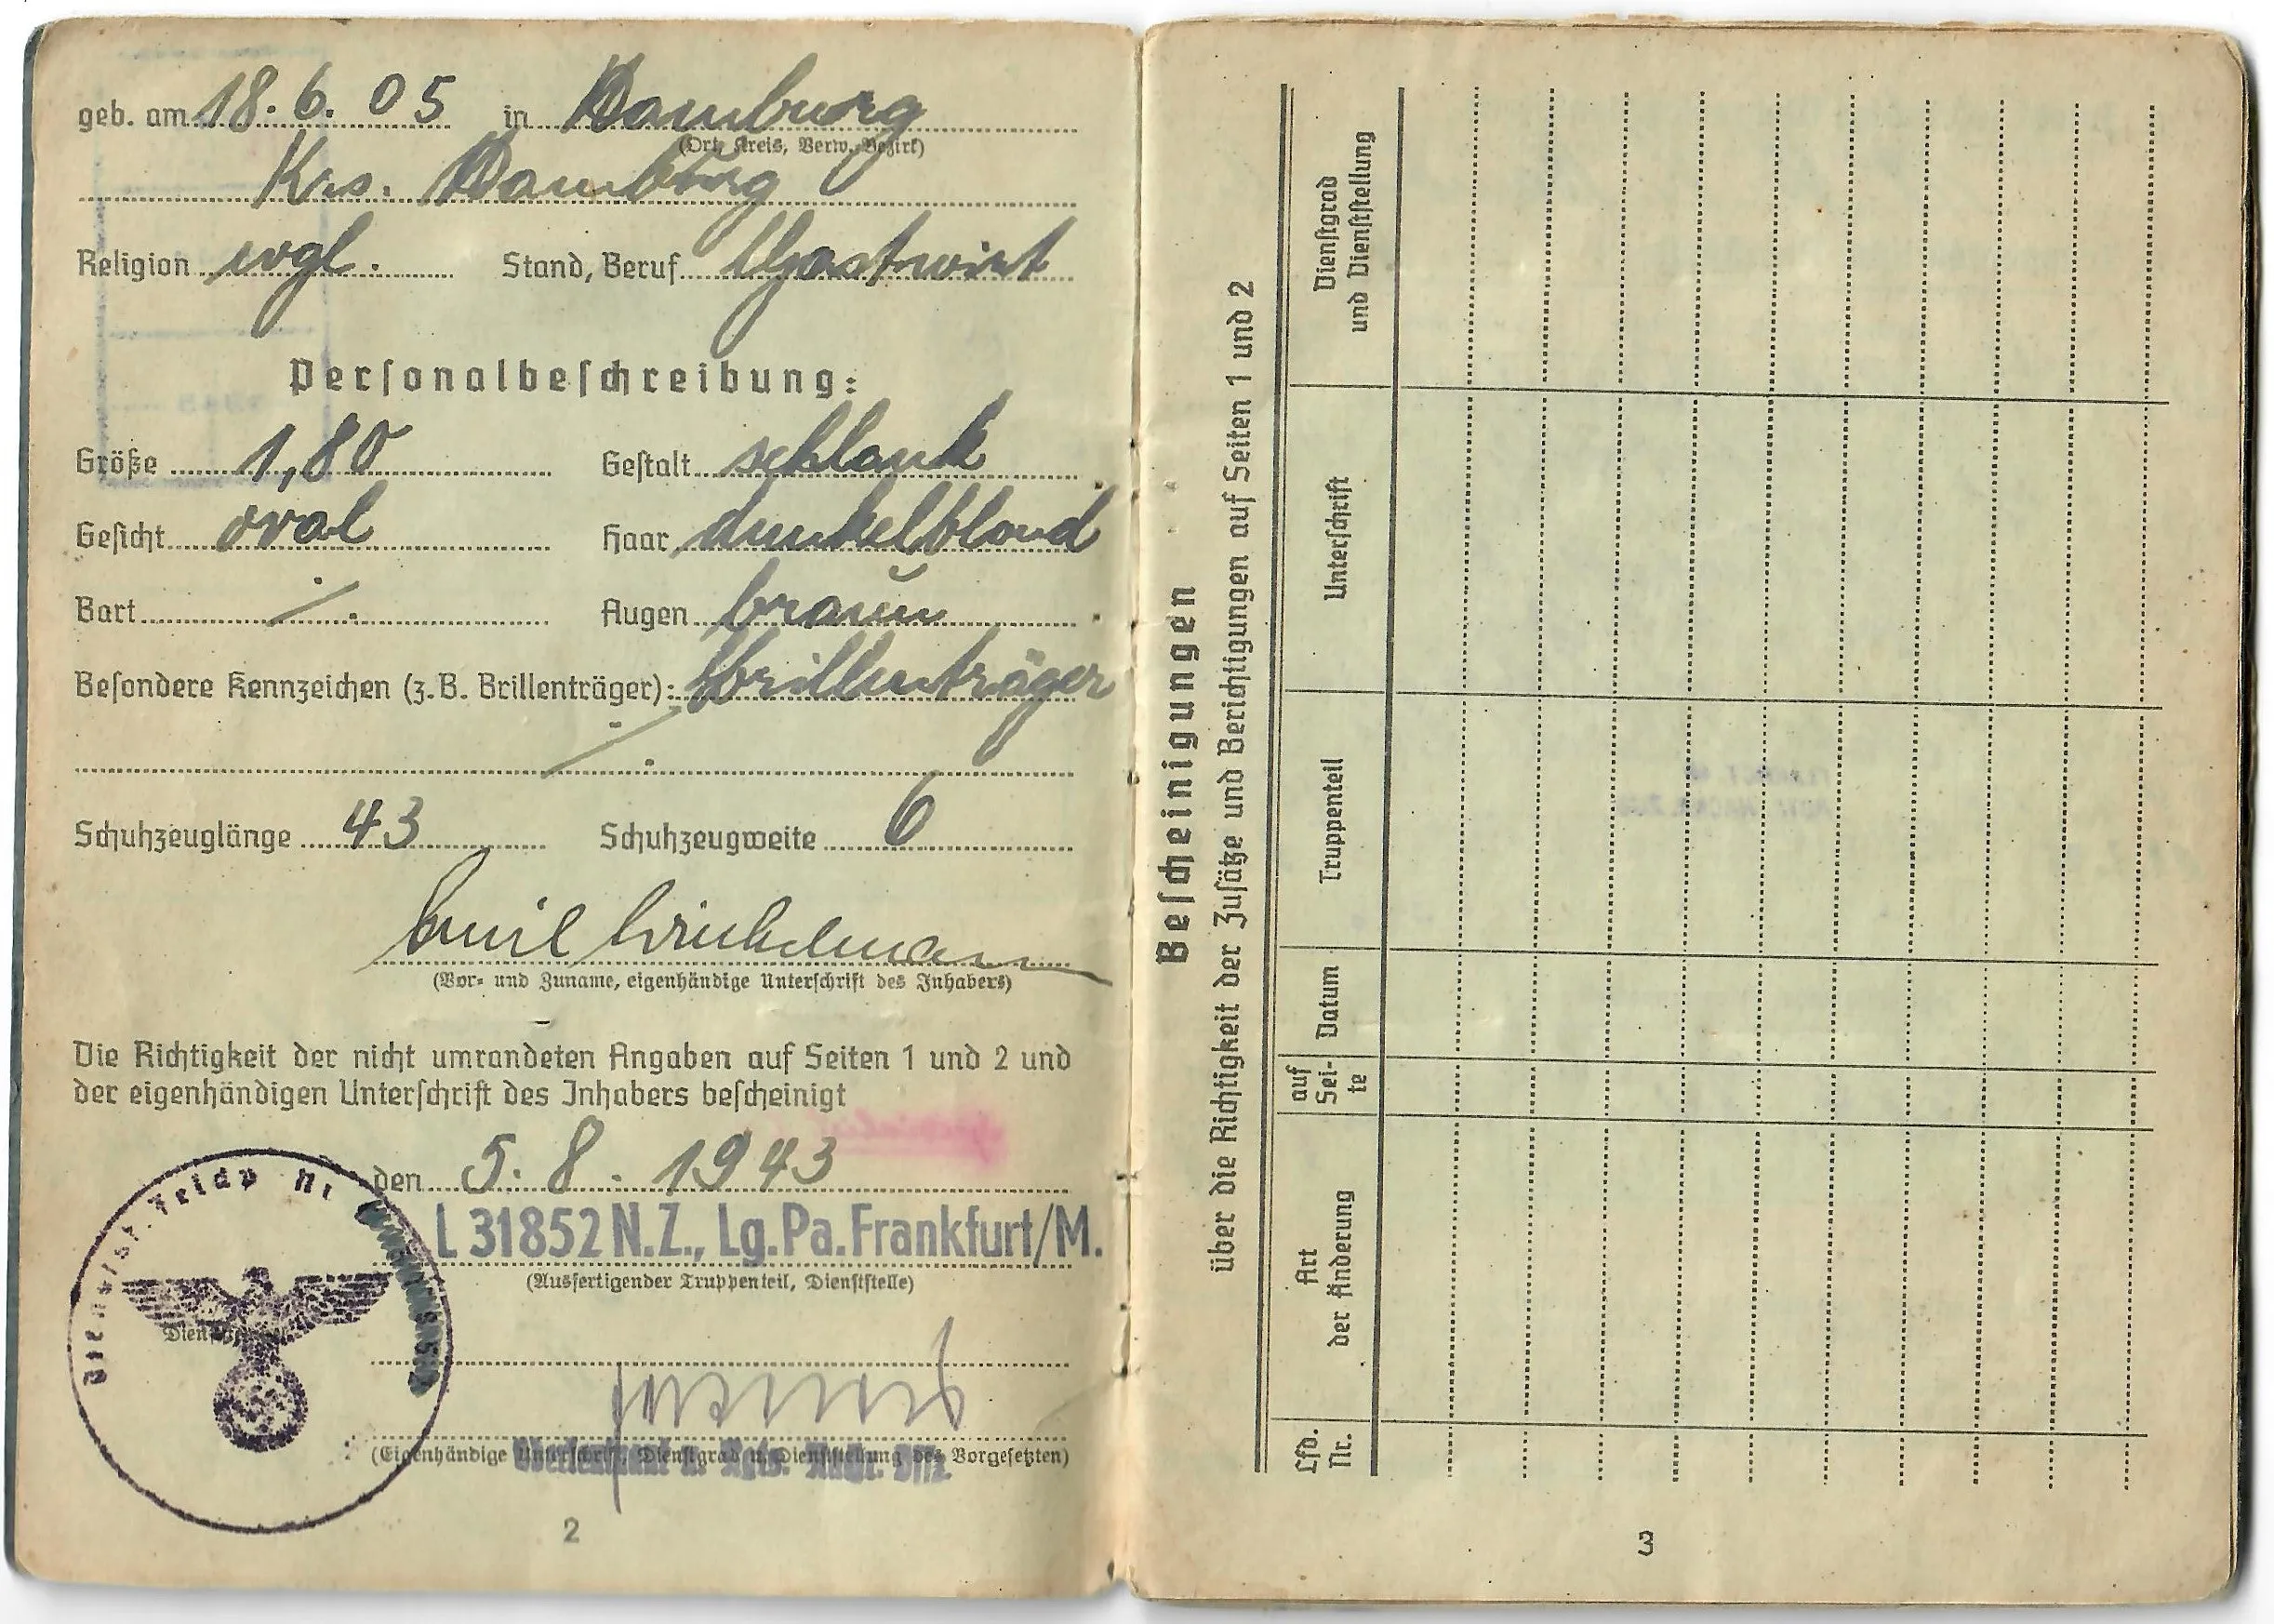 geb. am 18. 6. 05 in Hamburg
(Ort, Kreis, Verw.-Bezirk)
Krs. Hamburg
Religion evgl. Stand, Beruf Gastwirt
Personalbeschreibung:
Größe 1,80 Gestalt schlank
Gesicht oval Haar dunkelblond
Bart ./. Augen braun
Besondere Kennzeichen (z.B. Brillenträger): Brillenträger
./.
Schuhzeuglänge 43 Schuhzeugweite 6
Emil Winkelmann
(Vor- und Zuname, eigenhändige Unterschrift des Inhabers)
Die Richtigkeit der nicht umrandeten Angaben auf Seiten 1 und 2 und
der eigenhändigen Unterschrift des Inhabers bescheinigt
den 5. 8. 1943
L 31852 N.Z., Lg.Pa.Frankfurt/M.
(Ausfertigender Truppenteil, Dienststelle)
Dienstst. Feldp Nr
(Eigenhändige Unterschrift, Dienstgrad u. Dienststellung des Vorgesetzten)
2
Bescheinigungen
über die Richtigkeit der Zusätze und Berichtigungen auf Seiten 1 und 2
Lfd. Nr.
Art der Änderung
auf Sei-te
Datum
Truppenteil
Unterschrift
Dienstgrad und Dienststellung
3